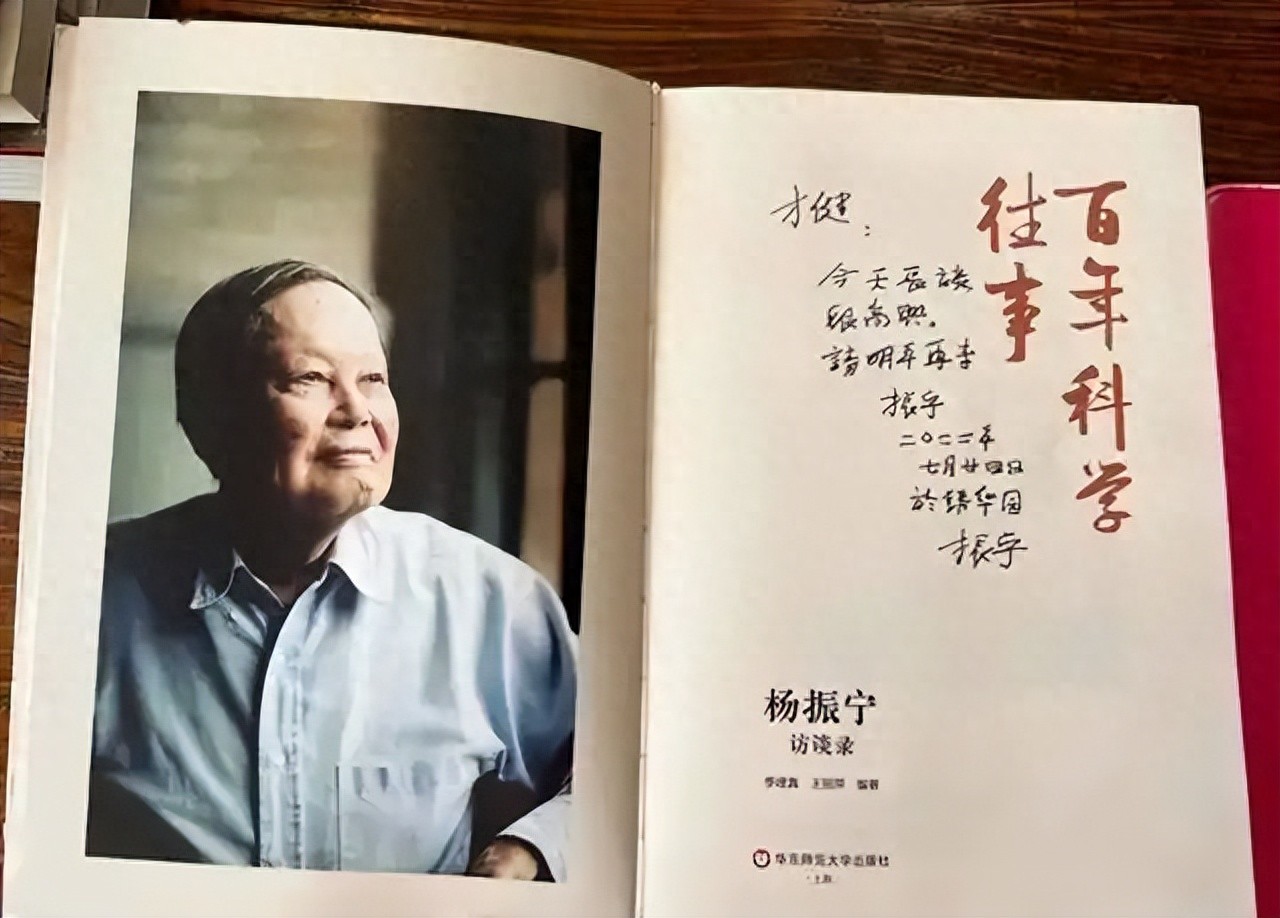 百年科学
往事
才健:
今天長談
很高興。
請明年再来
振宁
二〇二二年
七月廿四日
於清华园
振宁
杨振宁
访谈录
编著
华东师范大学出版社
·上海·